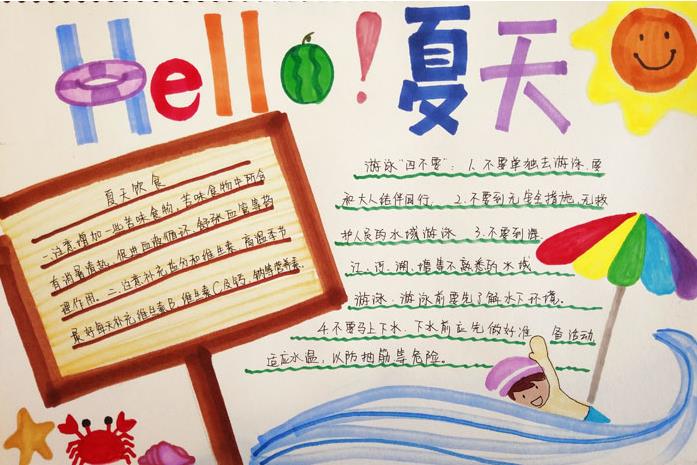 Hello！夏天
夏天饮食
一.注意增加一些苦味食物，苦味食物中所含
有消暑清热，促进血液循环，舒张血管等药
理作用。二.注意补充盐分和维生素，高温季节
最好每天补充维生素B、维生素C及钙，钠等营养素.
游泳“四不要”：1.不要单独去游泳，要
和大人结伴同行. 2.不要到无安全措施、无救
护人员的水域游泳 3.不要到海、
江、河、湖、塘等不熟悉的水域
游泳. 游泳前要先了解水下环境。
4.不要马上下水、下水前应先做好准备活动，
适应水温，以防抽筋等危险。